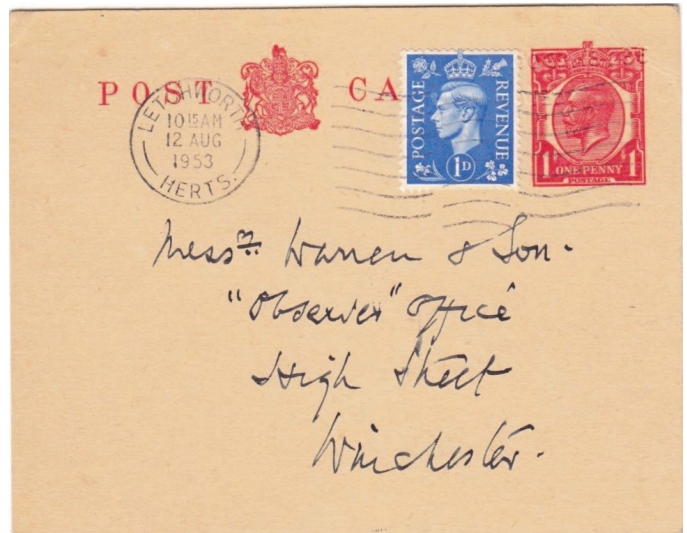 POST CA
LETCHWORTH
10 15 AM
12 AUG
1953
HERTS.
POSTAGE
REVENUE
1D
1 1
ONE PENNY
POSTAGE
Messrs. Warren & Son.
"Observer" Office
High Street
Winchester.